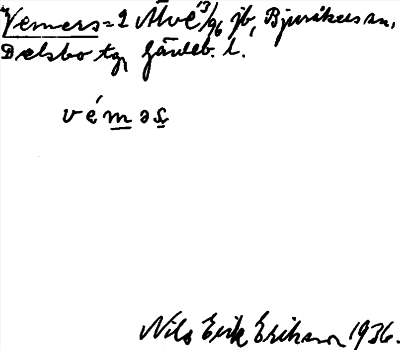 Vemers = 2 Älve 3/96 jb, Bjuråkers sn,
Delsbo tg, Gävleb. l.
véməs
Nils Erik Erikson 1936.